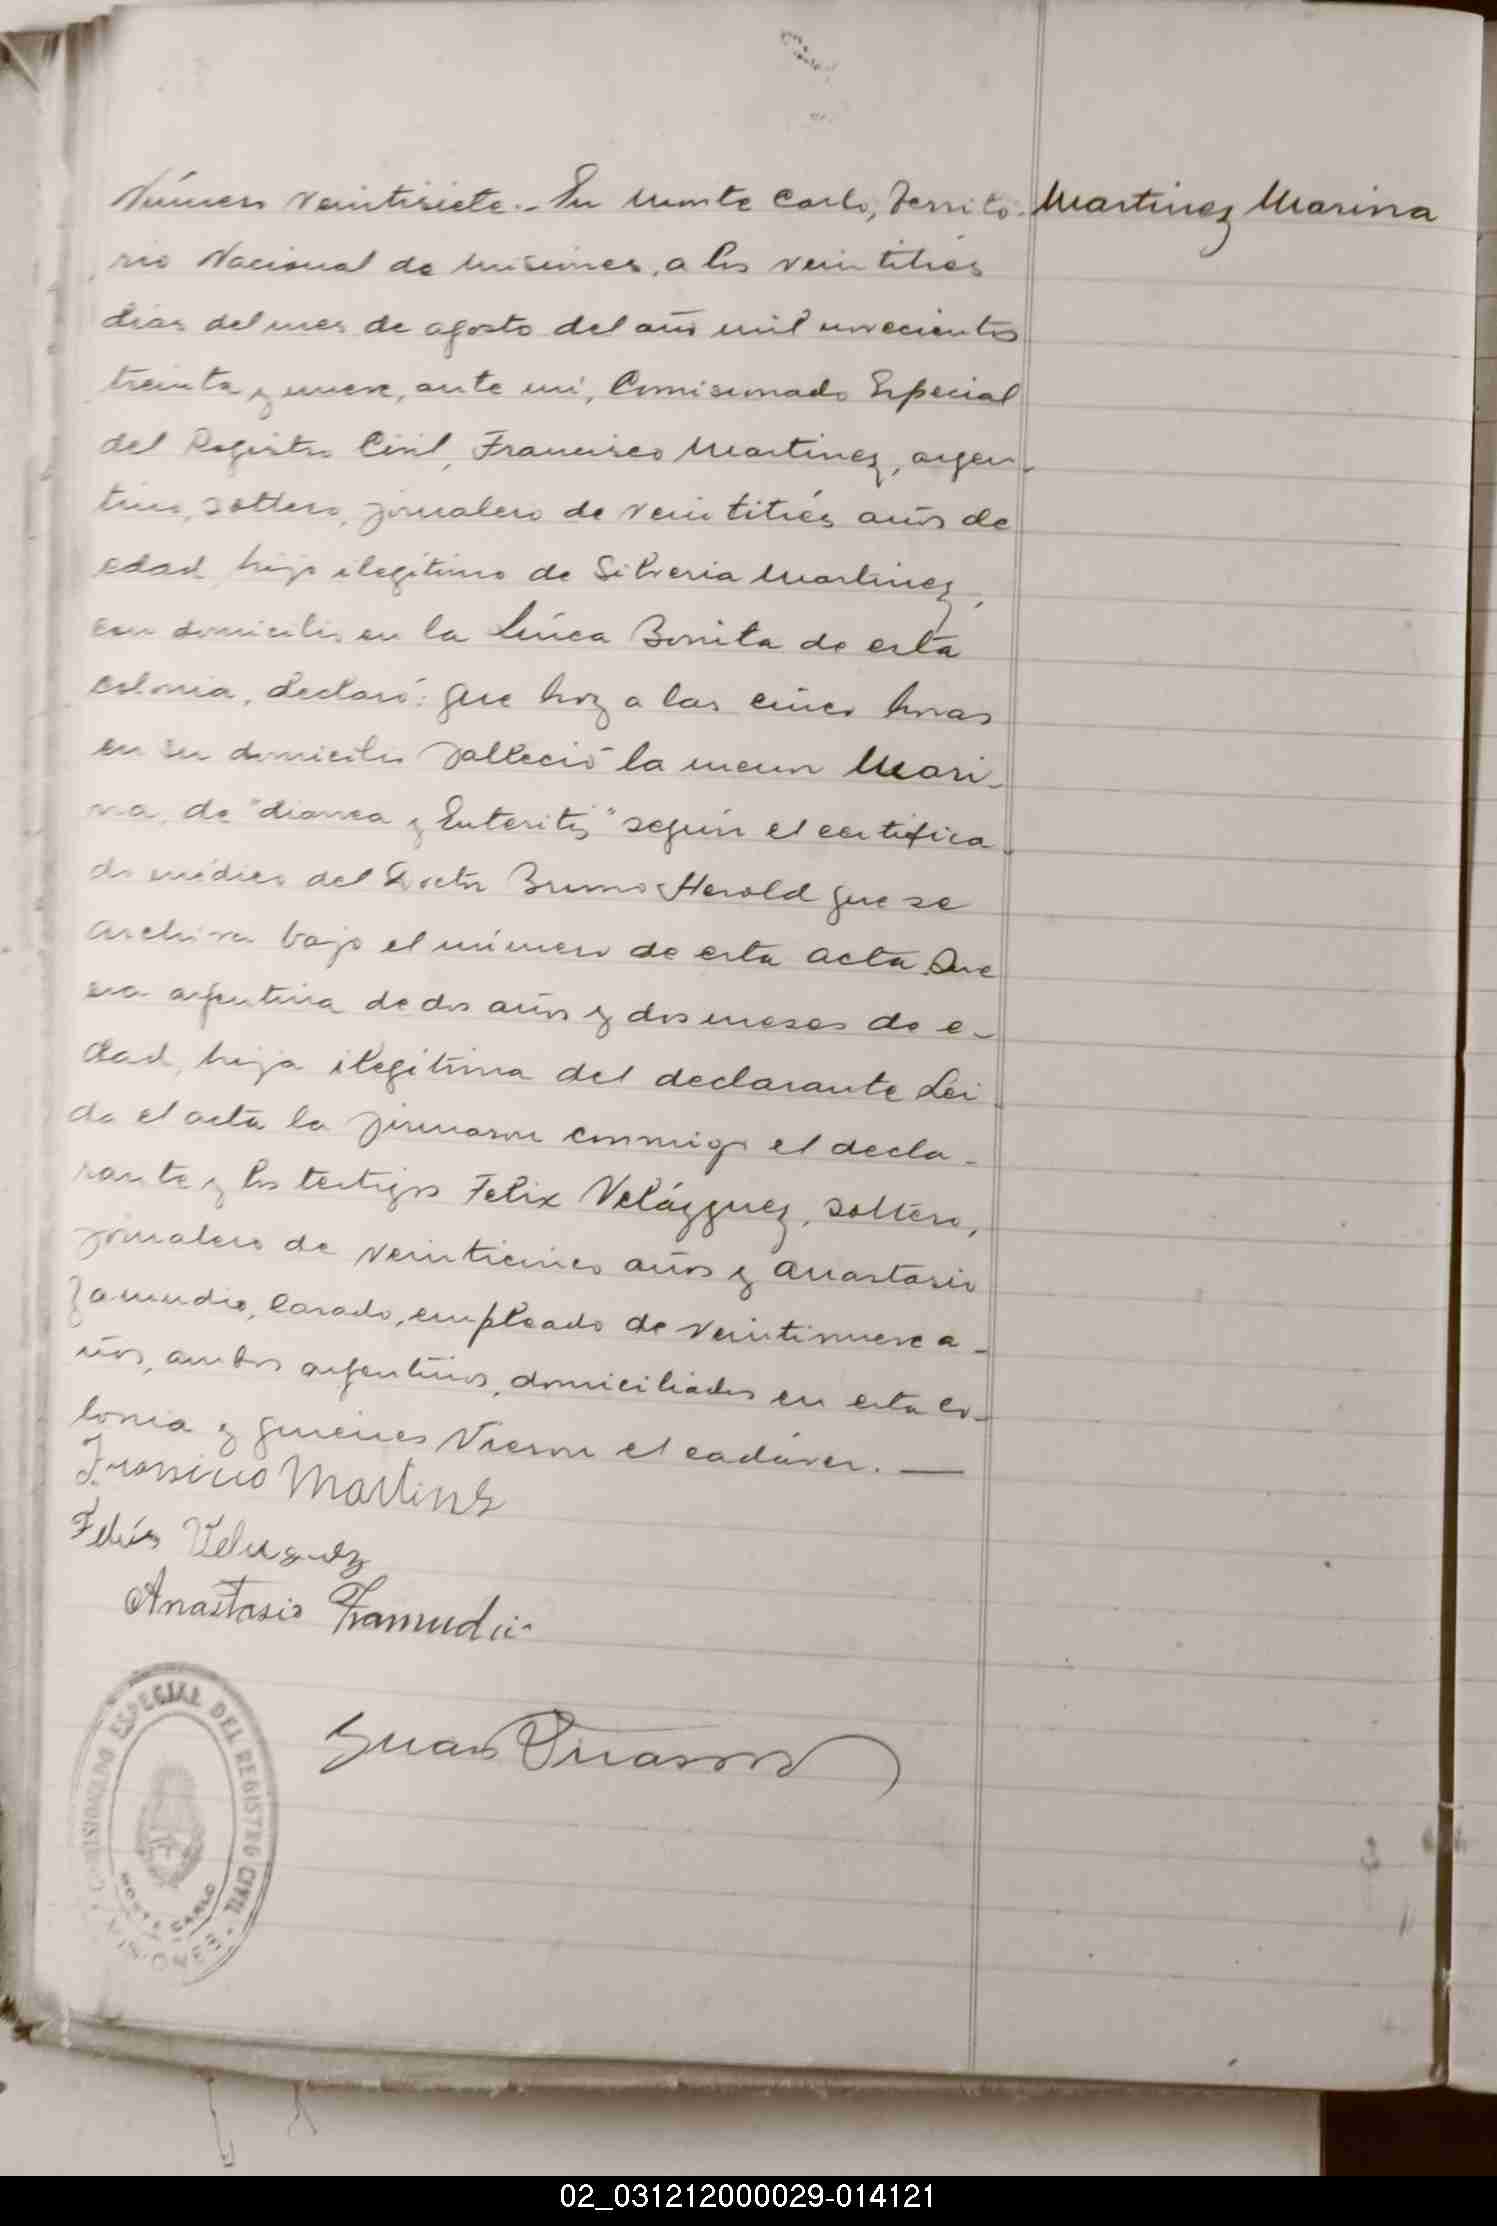 Número veintisiete.- En Monte Carlo, Territo-
Martinez Marina
rio Nacional de Misiones, a los veintitrés
días del mes de agosto del año mil novecientos
treinta y nueve, ante mí, Comisionado Especial
del Registro Civil, Francisco Martinez, argen-
tino, soltero, jornalero de veintitrés años de
edad, hijo ilegítimo de Silveria Martinez,
con domicilio en la Línea Bonita de esta
colonia, declaró: que hoy a las cinco horas
en su domicilio falleció la menor Mari-
na, de "diarrea y Enteritis" según el certifica-
do médico del Doctor Bruno Herold que se
archiva bajo el número de esta acta. Que
era argentina de dos años y dos meses de e-
dad, hija ilegítima del declarante Lei-
da el acta la firmaron conmigo el decla-
rante y los testigos Felix Velázquez, soltero,
jornalero de veinticinco años y Anastasio
Zamudio, casado, empleado de veintinueve a-
ños, ambos argentinos, domiciliados en esta co-
lonia y quienes vieron el cadáver. —
Martines
Anastasio Zamudio
Juan
COMISIONADO ESPECIAL DEL REGISTRO CIVIL
MONTE CARLO
MISIONES
02_031212000029-014121